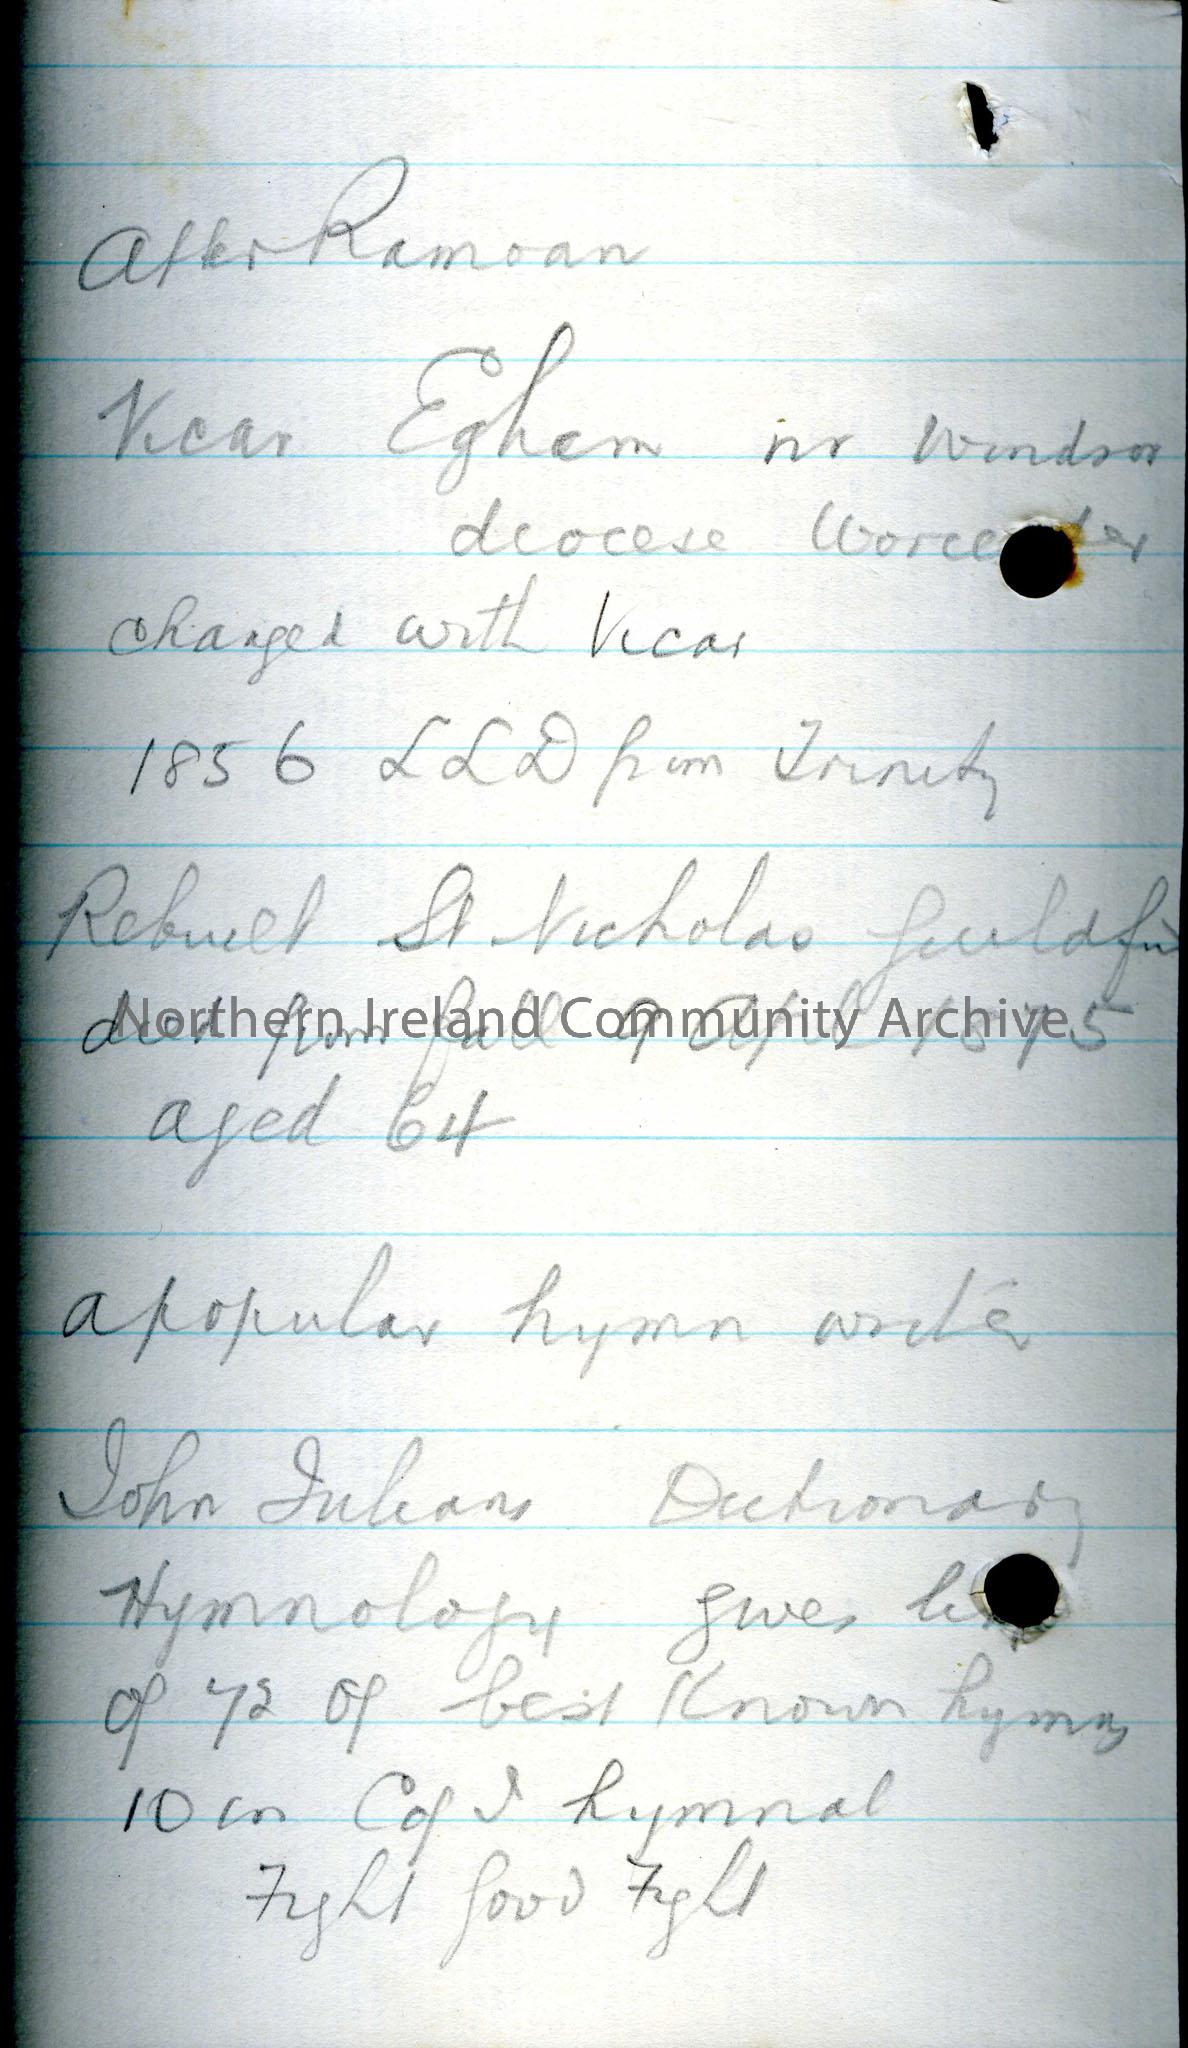 After Ramoan
Vicar Egham nr Windsor
diocese Worcester
changed with Vicar
1856 LLD from Trinity
Rebuilt St Nicholas Guildford
died from fall 9 April 1875
Northern Ireland Community Archive
aged 64
a popular hymn writer
John Julians Dictionary
Hymnology gives
of 72 of best known hymns
10 in C of I hymnal
Fight Good Fight